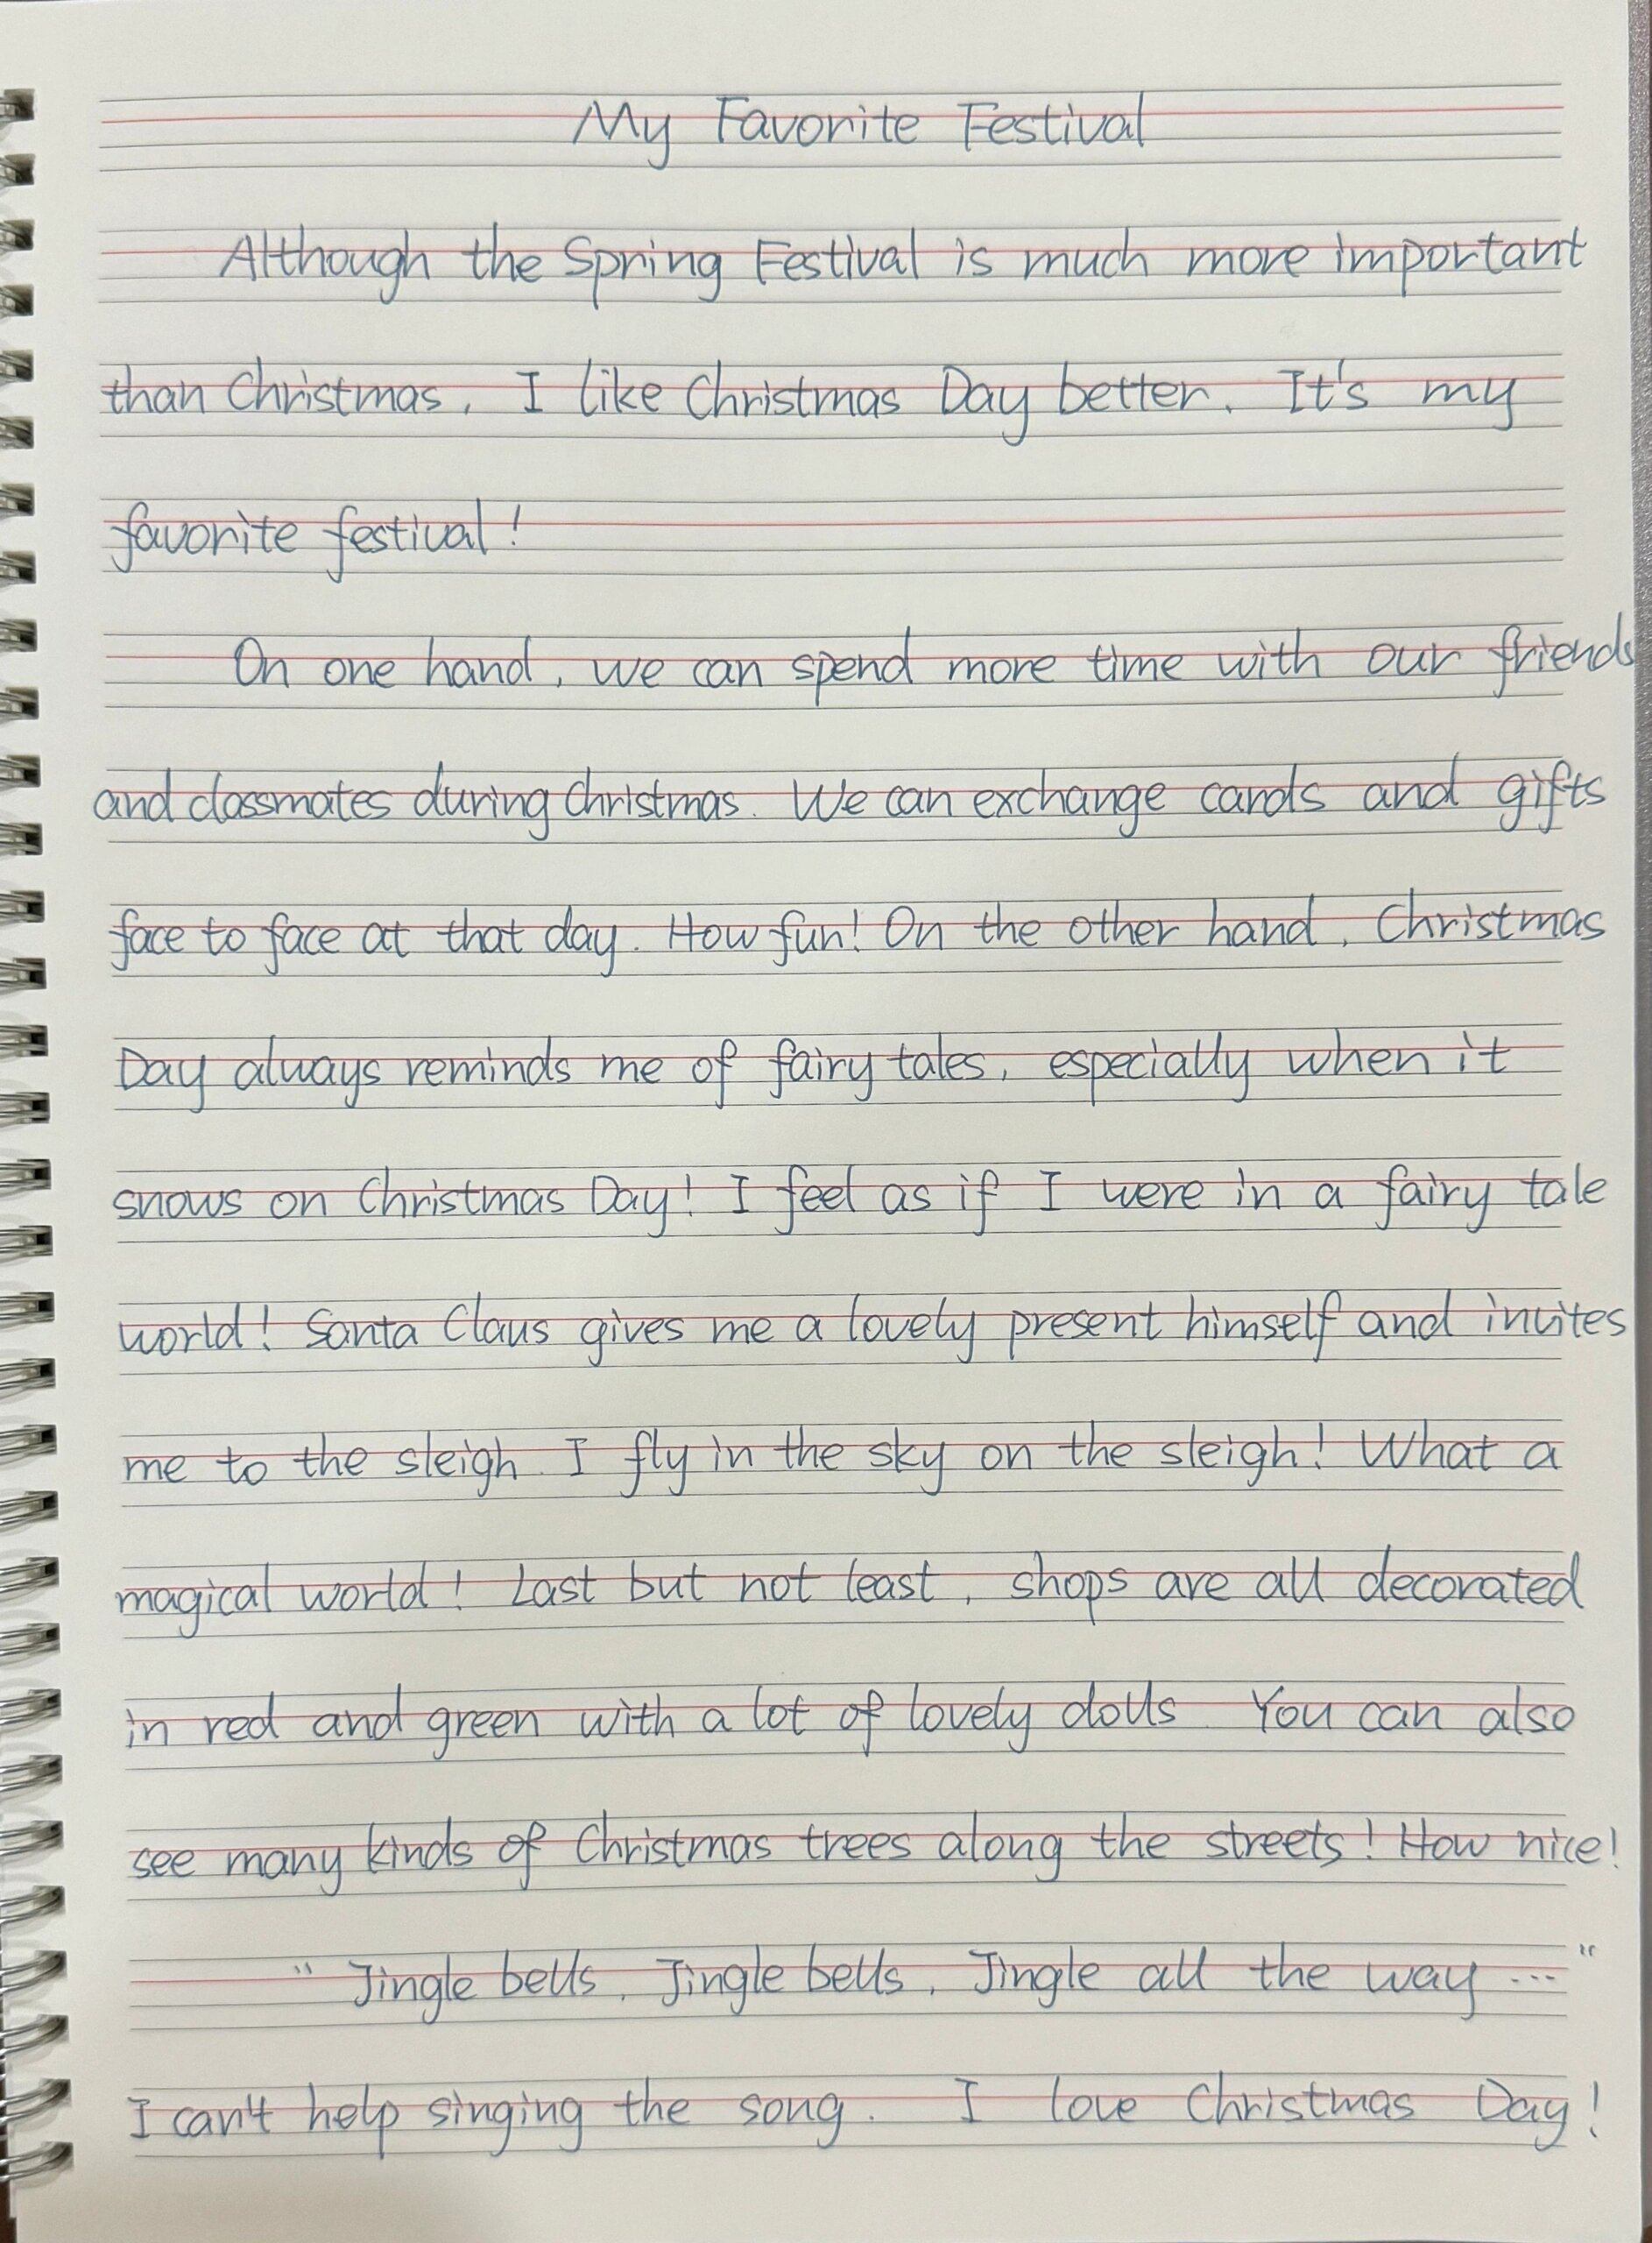 My Favorite Festival
Although the Spring Festival is much more important
than Christmas, I like Christmas Day better. It's my
favorite festival!
On one hand, we can spend more time with our friends
and classmates during Christmas. We can exchange cards and gifts
face to face at that day. How fun! On the other hand, Christmas
Day always reminds me of fairy tales, especially when it
snows on Christmas Day! I feel as if I were in a fairy tale
world! Santa Claus gives me a lovely present himself and invites
me to the sleigh. I fly in the sky on the sleigh! What a
magical world! Last but not least, shops are all decorated
in red and green with a lot of lovely dolls You can also
see many kinds of Christmas trees along the streets! How nice!
"Jingle bells, Jingle bells, Jingle all the way ..."
I can't help singing the song. I love Christmas Day!